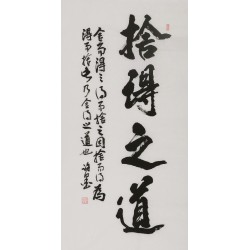 捨得之道
舍而得之得而捨之因捨而得為
得而捨也乃舍得之道也